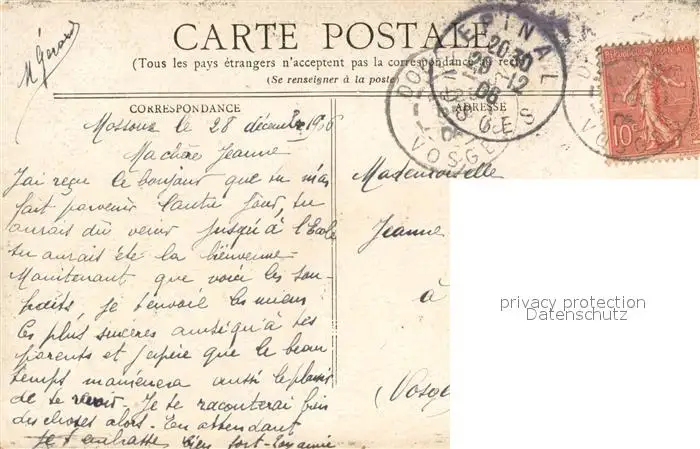 M Gérard
CARTE POSTALE
(Tous les pays étrangers n'acceptent pas la correspondance au recto)
(Se renseigner à la poste)
CORRESPONDANCE
ADRESSE
le 28 décembre 1906
Ma chère Jeanne
J'ai reçu le bonjour que tu m'as
fait parvenir l'autre jour, tu
aurais dû venir jusqu'à l'Ecole
tu aurais été la bienvenue
Maintenant que voici les sou-
haits je t'envoie les miens
les plus sincères ainsi qu'à tes
parents et j'espère que le beau
temps ramènera aussi le plaisir
de te revoir. Je te raconterai bien
des choses alors. En attendant
je t'embrasse bien fort. Ton amie
Mademoiselle
Jeanne
à
(Vosge
EPINAL
20 30
28 -12
06
VOSGES
DO
VOSGES
REPUBLIQUE FRANÇAISE
10c
privacy protection
Datenschutz